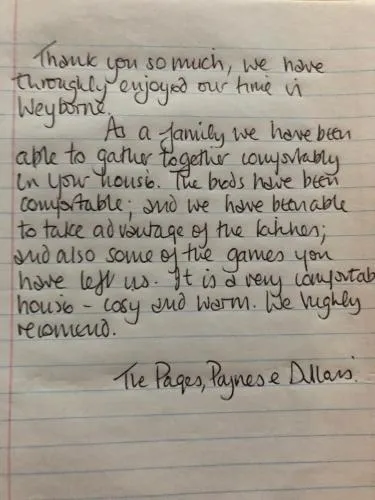 Thank you so much, we have
throughly enjoyed our time in
Weyborne.
As a family we have been
able to gather together comfortably
in your house. The beds have been
comfortable; and we have been able
to take advantage of the kitchen;
and also some of the games you
have left us. It is a very comfortab
house - cosy and warm. We highly
recomend.
The Pages, Paynes &